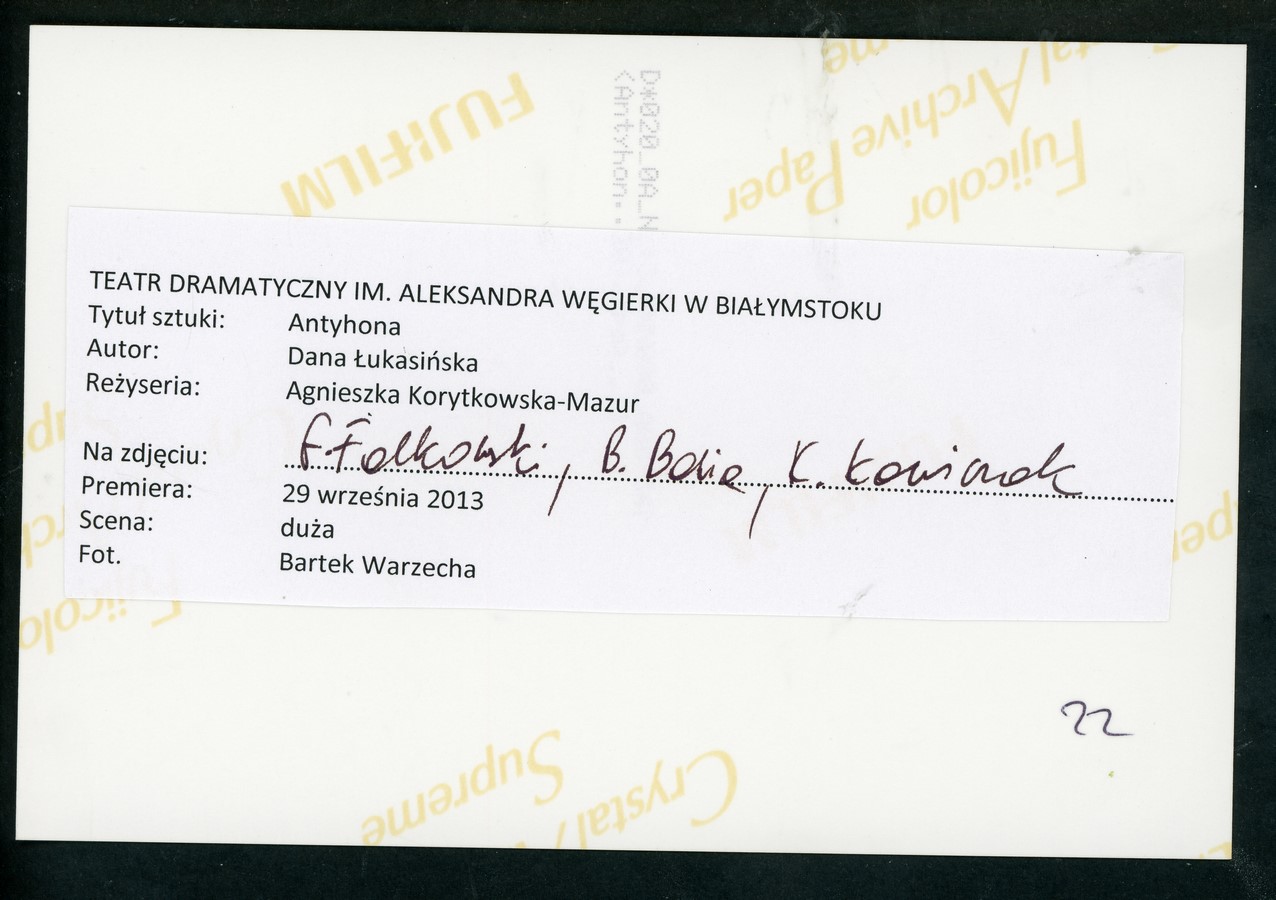 Crystal Archive Paper
Supreme
Fujicolor
FUJIFILM
D*020_0A_N
<Antyhon..
TEATR DRAMATYCZNY IM. ALEKSANDRA WĘGIERKI W BIAŁYMSTOKU
Tytuł sztuki: Antyhona
Autor: Dana Łukasińska
Reżyseria: Agnieszka Korytkowska-Mazur
Na zdjęciu: B.
Premiera: 29 września 2013
Scena: duża
Fot. Bartek Warzecha
Fujicolo
22
Supreme
Crystal